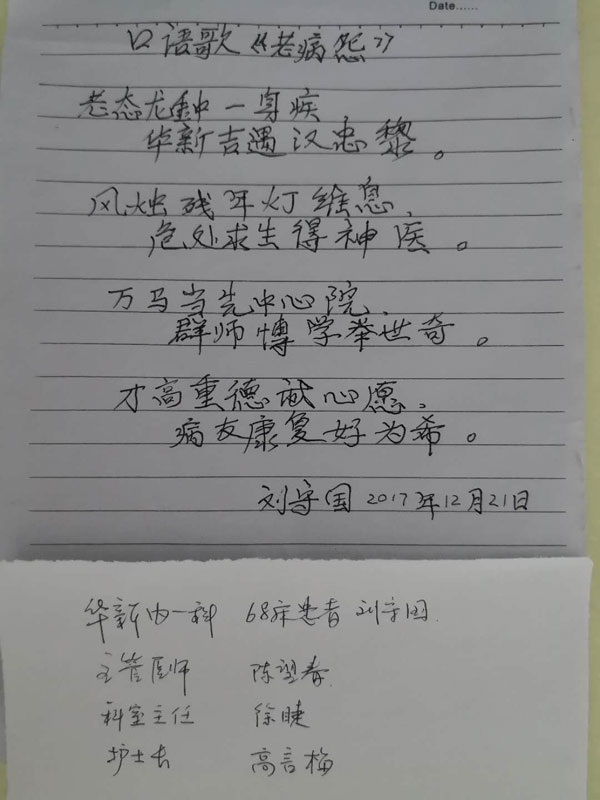 Date......
口语歌《老病怨》
老态龙钟一身疾
华新吉遇汉忠黎。
风烛残年灯维息、
危处求生得神医。
万马当先中心院、
群师博学举世奇。
才高重德诚心愿、
病友康复好为希。
刘守国 2017年12月21日
华新内一科 68床患者 刘守国
主管医师 陈望春
科室主任 徐睫
护士长 高言梅